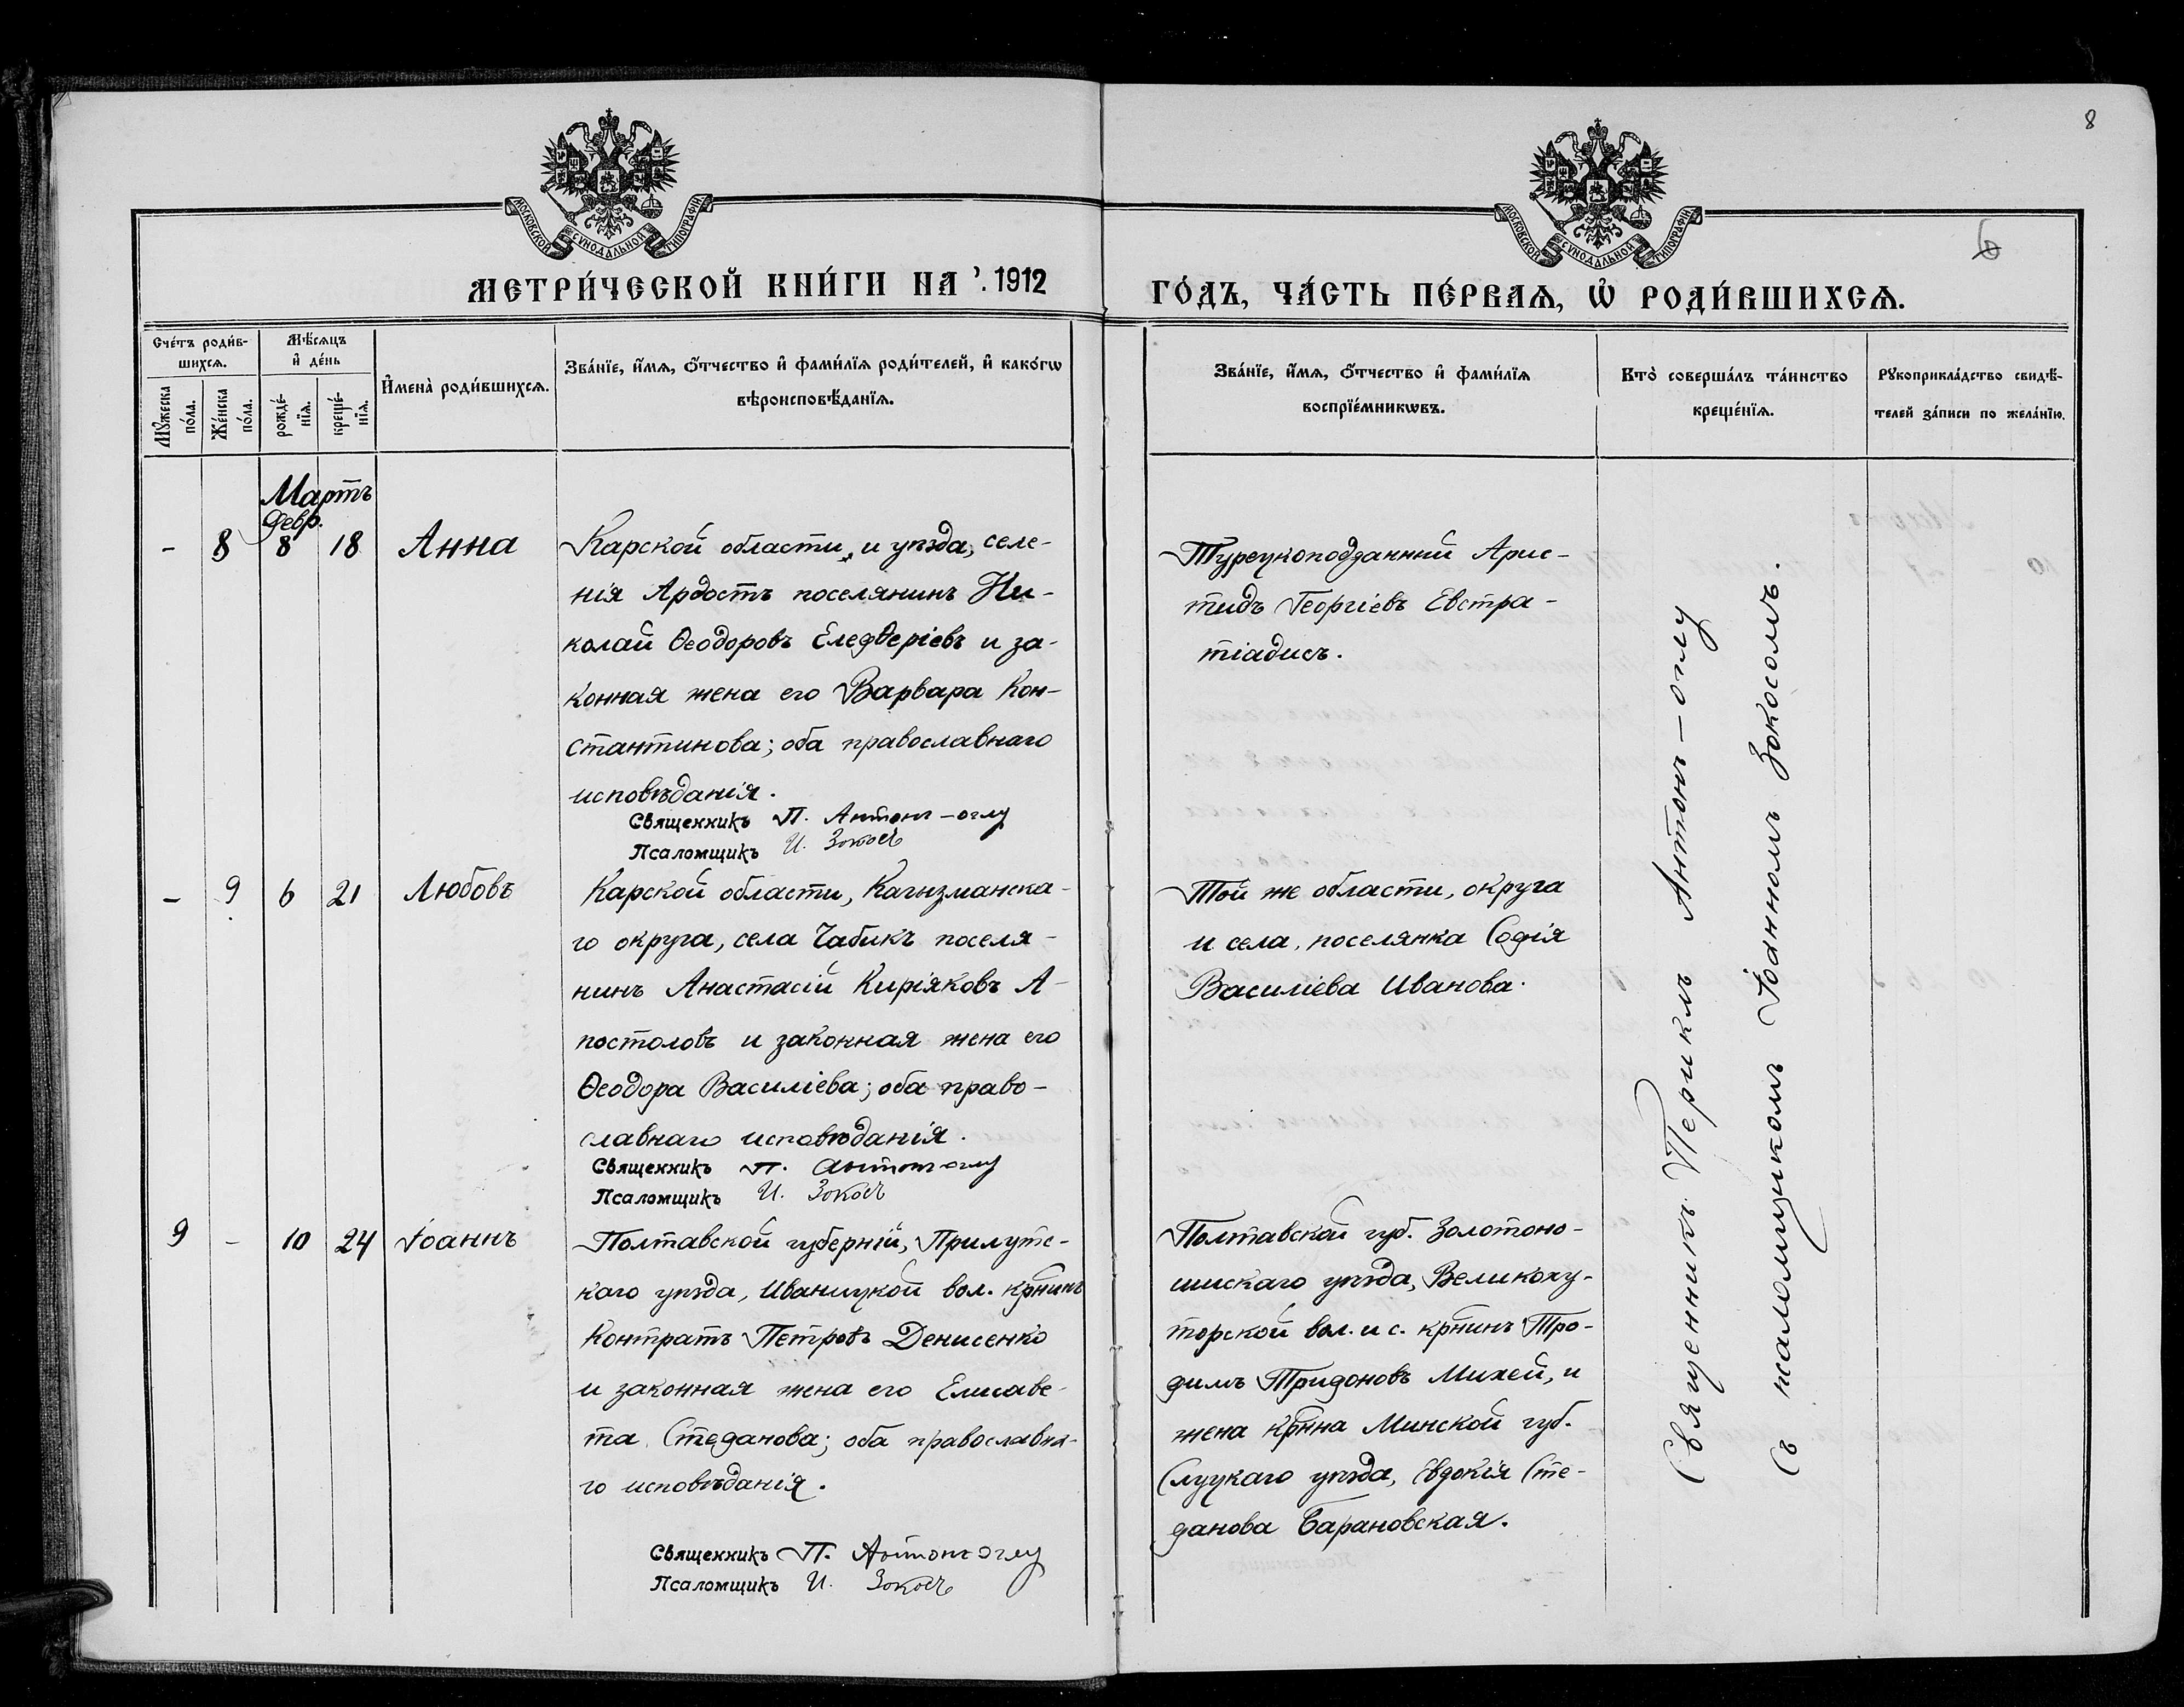 8
6
МОСКОВСКОЙ СѴНОДАЛЬНОЙ ТИПОГРАФІИ
МОСКОВСКОЙ СѴНОДАЛЬНОЙ ТИПОГРАФІИ
МЕТРИ́ЧЕСКОЙ КНИ́ГИ НА 1912
ГО́ДЪ, ЧА́СТЬ ПЕ́РВАѦ, Ѡ҆ РОДИ́ВШИХСѦ.
Сче́тъ роди́в-
шихсѧ.
Мꙋ́жеска
по́ла.
Же́нска
по́ла.
Мѣ́сѧцъ
и҆ де́нь
рожде́-
нїѧ.
креще́-
нїѧ.
И҆мена̀ роди́вшихсѧ.
Зва́нїе, и҆́мѧ, ѻ҆́тчество и҆ фами́лїѧ роди́телей, и҆ како́гѡ
вѣроисповѣ́данїѧ.
Зва́нїе, и҆́мѧ, ѻ҆́тчество и҆ фами́лїѧ
воспрїе́мникѡвъ.
Кто̀ соверша́лъ та́инство
креще́нїѧ.
Рꙋкоприкла́дство свидѣ́-
телей за́писи по жела́нїю.
Мартъ
Февр.
- 8 8 18 Анна
Карской области и уѣзда, селе-
нія Ардостъ поселянинъ Ни-
колай Ѳеодоровъ Елефѳеріевъ и за-
конная жена его Варвара Кон-
стантинова; оба православнаго
исповѣданія.
Священникъ П. Антонъ-оглу
Псаломщикъ И. Зокосъ
Турецкоподданный Арис-
тидъ Георгіевъ Евстра-
тіадисъ.
- 9 6 21 Любовь
Карской области, Кагызманска-
го округа, села Чабикъ поселя-
нинъ Анастасій Киріяковъ А-
постоловъ и законная жена его
Ѳеодора Василіева; оба право-
славнаго исповѣданія.
Священникъ П. Антонъ оглу
Псаломщикъ И. Зокосъ
Той же области, округа
и села, поселянка Софія
Василіева Иванова.
9 - 10 24 Іоаннъ
Полтавской губерніи, Прилутс-
каго уѣзда, Иваницкой вол. крнинъ
Контратъ Петровъ Денисенко
и законная жена его Елисаве-
та Стефанова; оба православна-
го исповѣданія.
Священникъ П. Антонъ Оглу
Псаломщикъ И. Зокосъ
Полтавской губ. Золотоно-
шискаго уѣзда, Великоху-
торской вол. и с. крнинъ Тро-
фимъ Трифоновъ Михей, и
жена крнна Минской губ.
Слуцкаго уѣзда, Евдокія Сте-
фанова Барановская.
Священникъ Периклъ Антонъ-оглу
Съ псаломщикомъ Іоанномъ Зокосомъ.